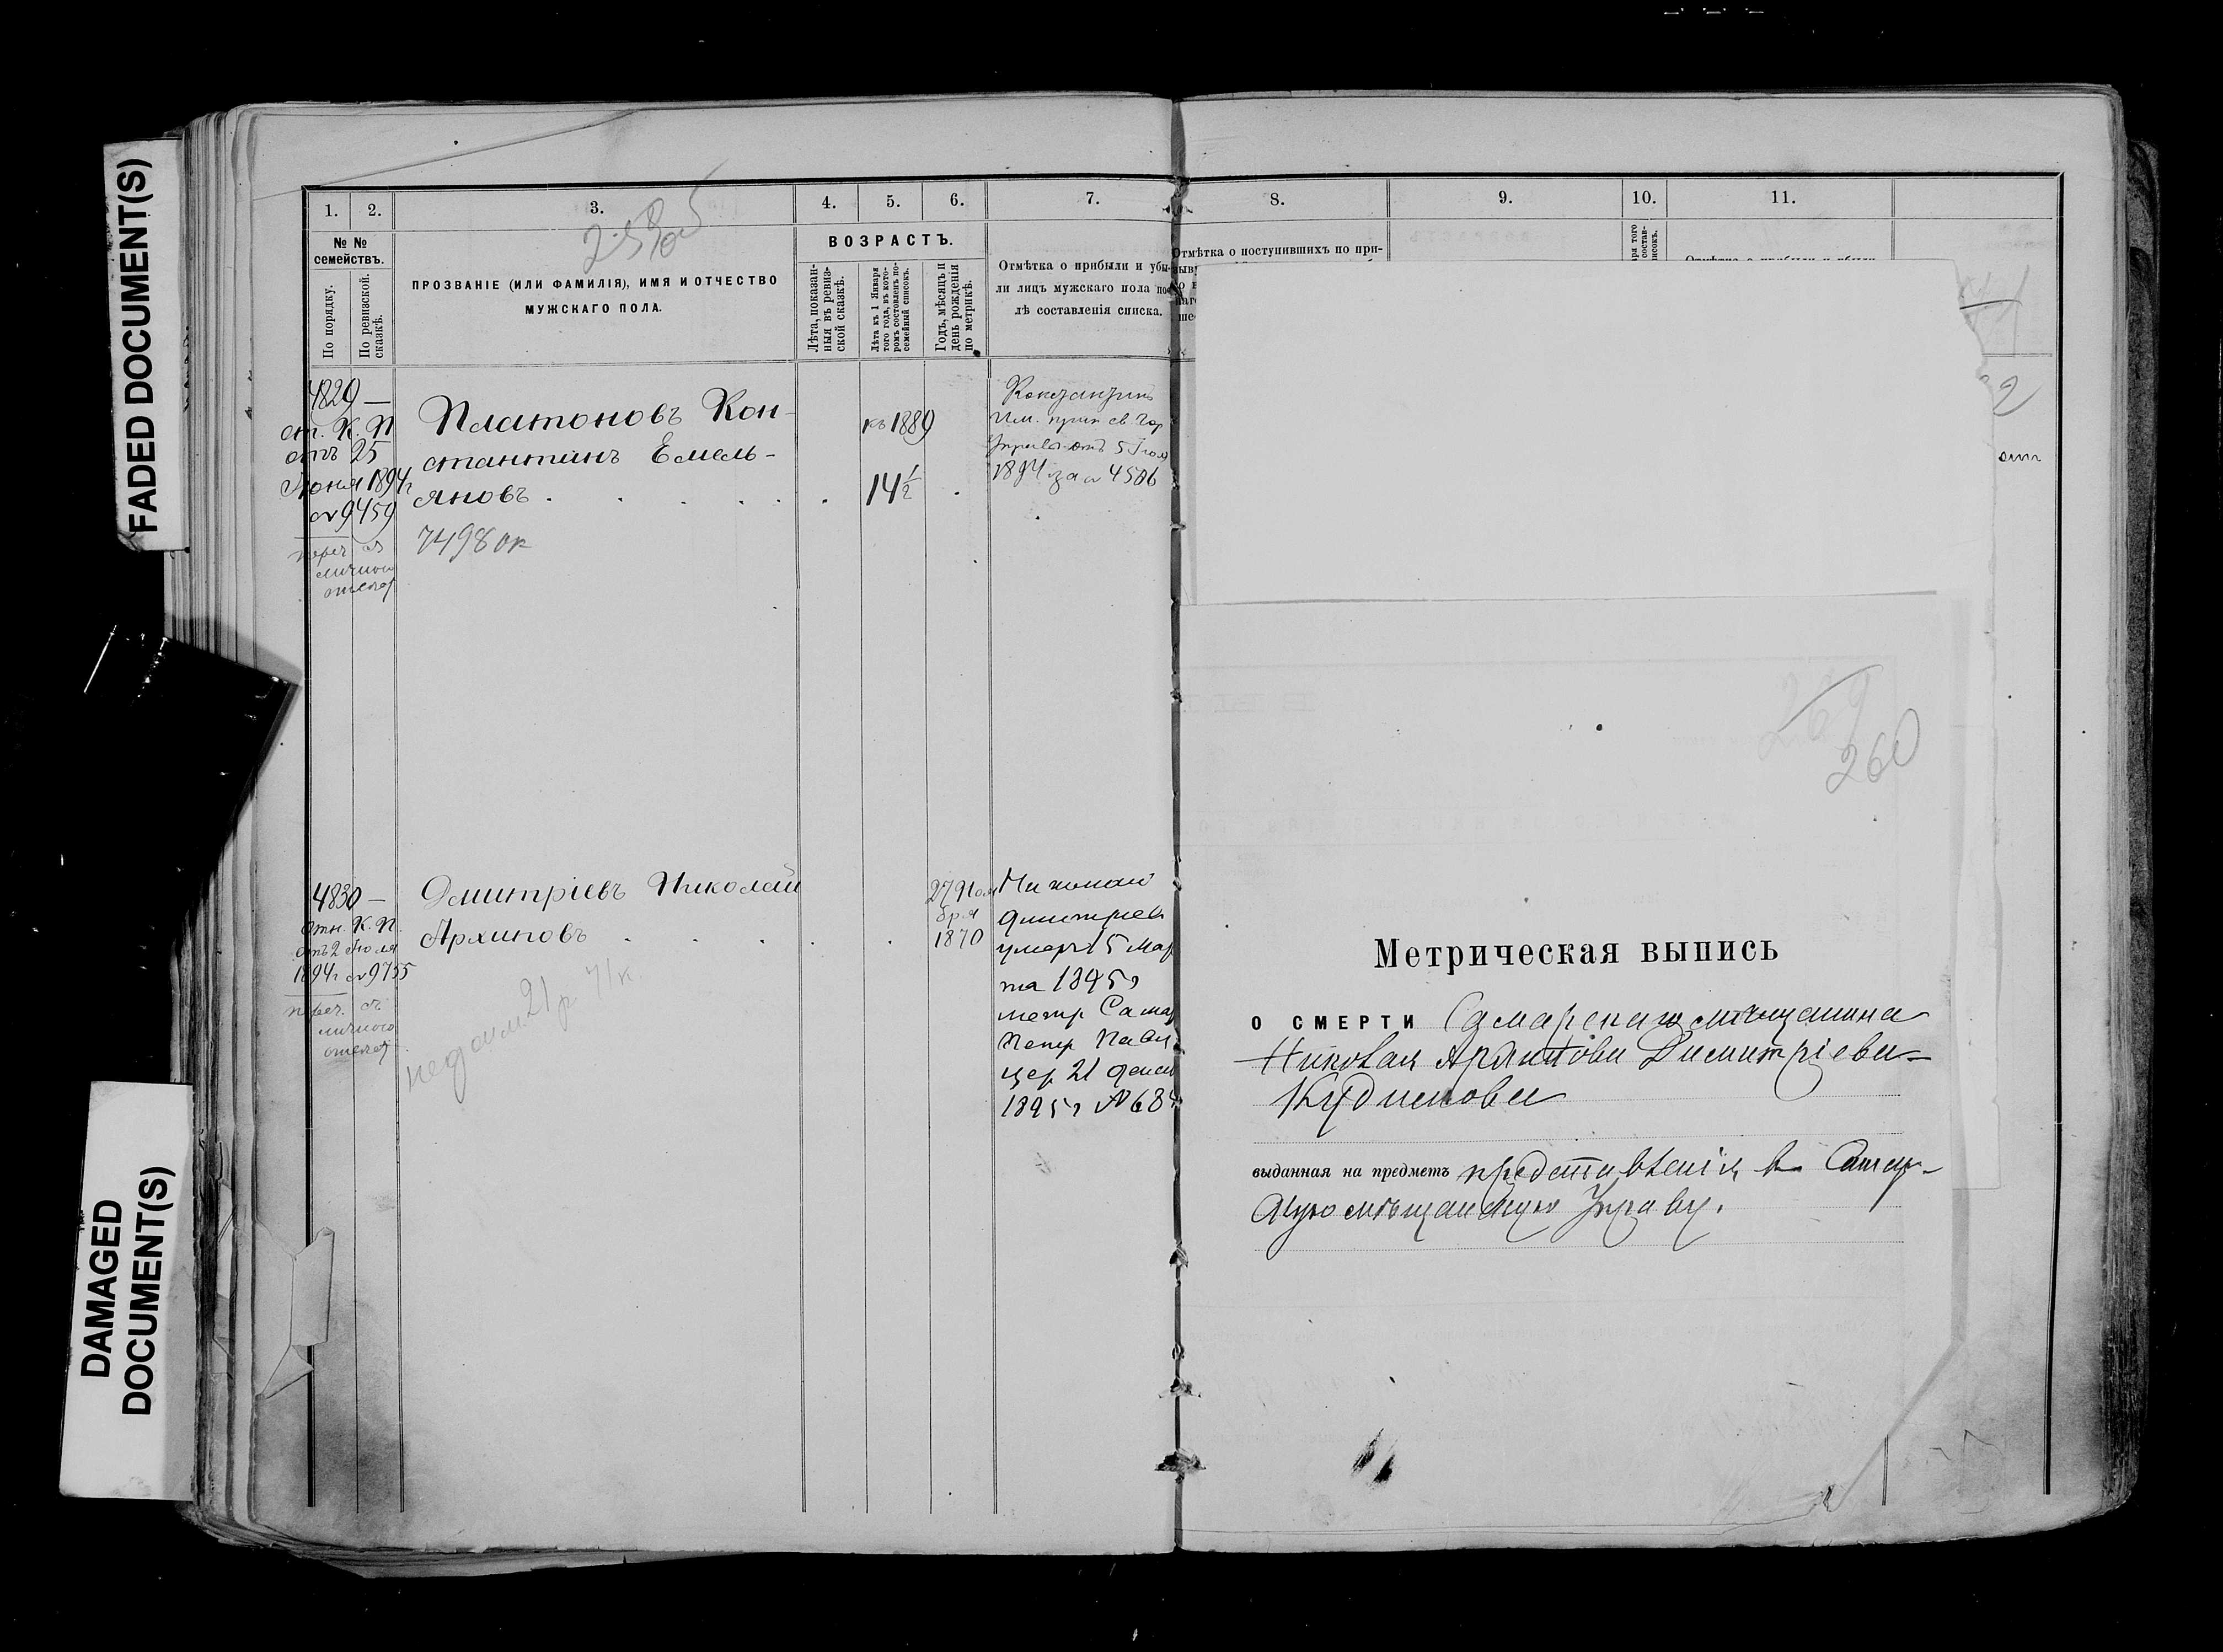 FADED DOCUMENT(S)
DAMAGED
DOCUMENT(S)
1.
2.
3.
4.
5.
6.
7.
№ №
семействъ.
По порядку.
По ревизской
сказкѣ.
ПРОЗВАНІЕ (ИЛИ ФАМИЛІЯ), ИМЯ И ОТЧЕСТВО
МУЖСКАГО ПОЛА.
ВОЗРАСТЪ.
Лѣта, показан-
ныя въ ревиз-
ской сказкѣ.
Лѣта къ 1 Января
того года, въ кото-
ромъ составленъ по-
семейный списокъ.
Годъ, мѣсяцъ и
день рожденія
по метрикѣ.
Отмѣтка о прибыли и убы-
ли лицъ мужскаго пола по-
лѣ составленія списка.
4829 —
от. К. П
отъ 25
Іюня 1894 г
№ 9459
переч. съ
личного
Платоновъ Кон-
стантинъ Емель-
яновъ
7498 ок
къ 1889
14 1/2
1894 за № 4506
4830 —
отн. К. П.
отъ 2 Іюля
1894 г № 9755
переч. съ
личного
Дмитріевъ Николай
Архиповъ
недоим. 21 р 71 к.
1870
Николай
Дмитриев
умеръ 15 Мар
та 1895 г
метр Самар
Петр Павл
цер 21
1895 г № 68
8.
9.
10.
11.
Отмѣтка о поступившихъ по при-
260
Метрическая выпись
О СМЕРТИ Самарскаго мѣщанина
Николая Архипова Димитріева-
Кудинова
выданная на предметъ представленія въ Самар-
скую мѣщанскую Управу.